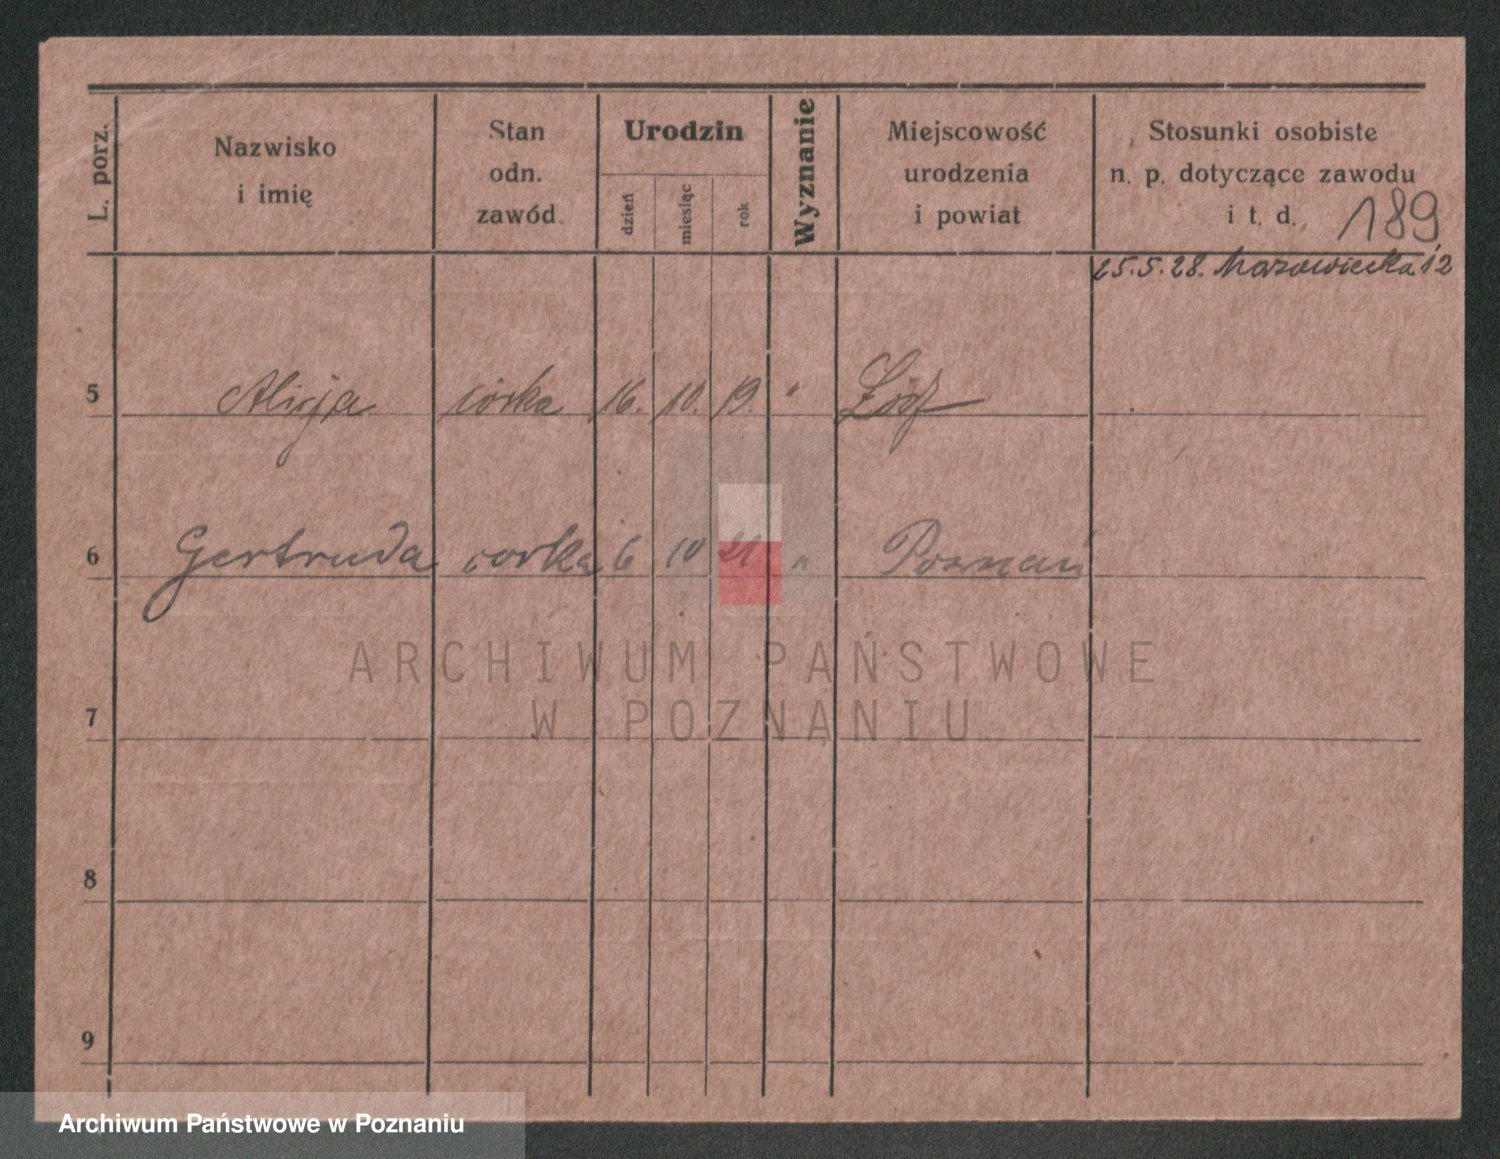 L. porz.
Nazwisko
i imię
Stan
odn.
zawód
Urodzin
dzień
miesiąc
rok
Wyznanie
Miejscowość
urodzenia
i powiat
Stosunki osobiste
n. p. dotyczące zawodu
i t. d.
189
25.5.28. Mazowiecka 12
5 Alicja córka 16. 10. 19. " Łódź
6 Gertruda corka 6 10 21 " Poznań
ARCHIWUM PAŃSTWOWE
W POZNANIU
7
8
9
Archiwum Państwowe w Poznaniu